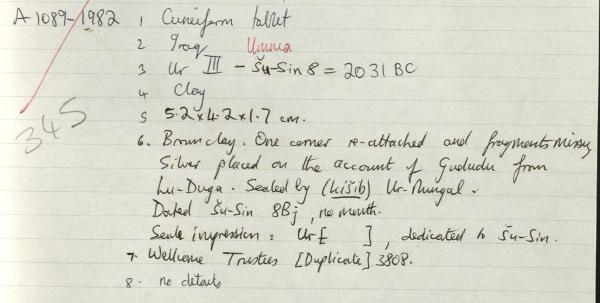 A 1089-1982 1 Cuneiform tablet
2 Iraq Umma
3 Ur III - Šu-Sin 8 = 2031 BC
4 Clay
5 5.2 x 4.2 x 1.7 cm.
345
6. Brown clay. One corner re-attached and fragments missing
Silver placed on the account of Gududu from
Lu-Duga. Sealed by (kišib) Ur-Nungal.
Dated Šu-Sin 8Bj, no month.
Seale impression: Ur[ ], dedicated to Šu-Sin.
7. Wellcome Trustees [Duplicate] 3808.
8. no details